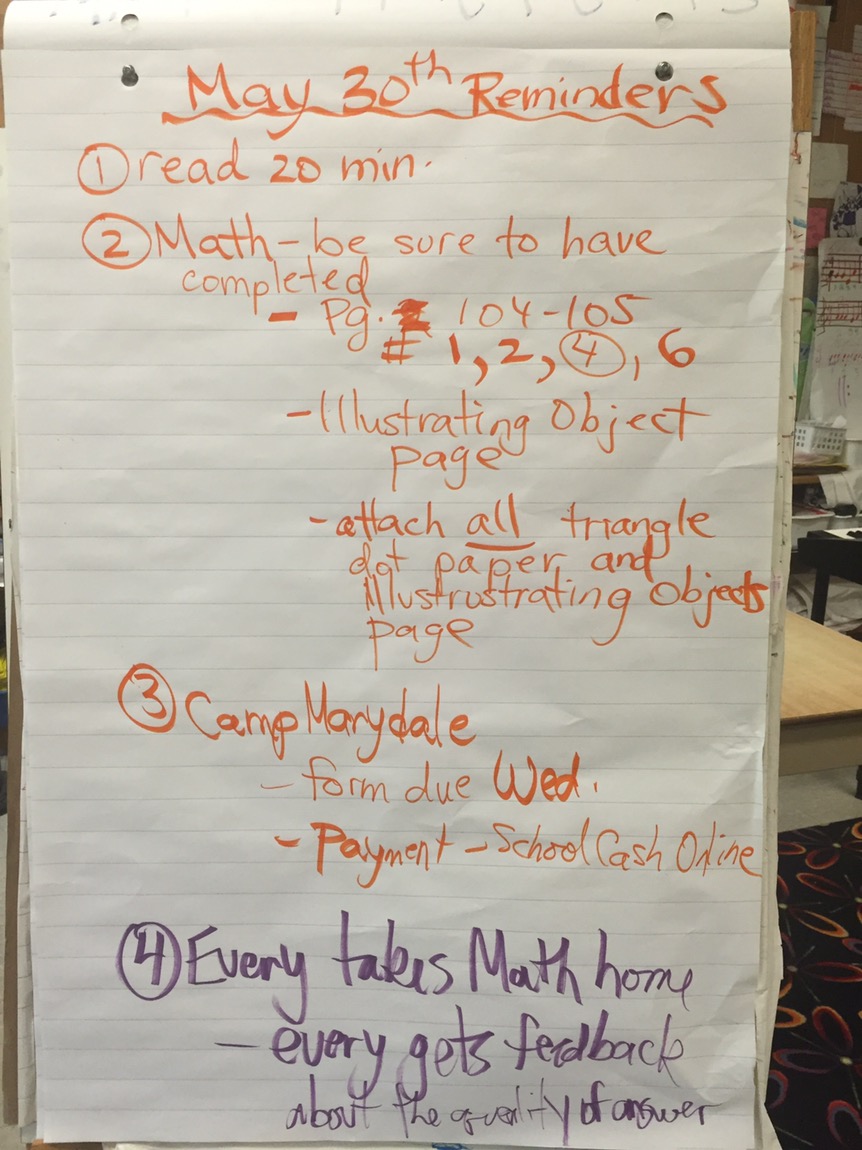 May 30th Reminders
① read 20 min.
② Math - be sure to have
completed
- Pg. 104-105
# 1, 2, ④, 6
- Illustrating Object
page
- attach all triangle
dot paper and
Illustrustrating Objects
page
③ Camp Marydale
- form due Wed.
- Payment - School Cash Online
④ Every takes Math home
- every gets feedback
about the quality of answer